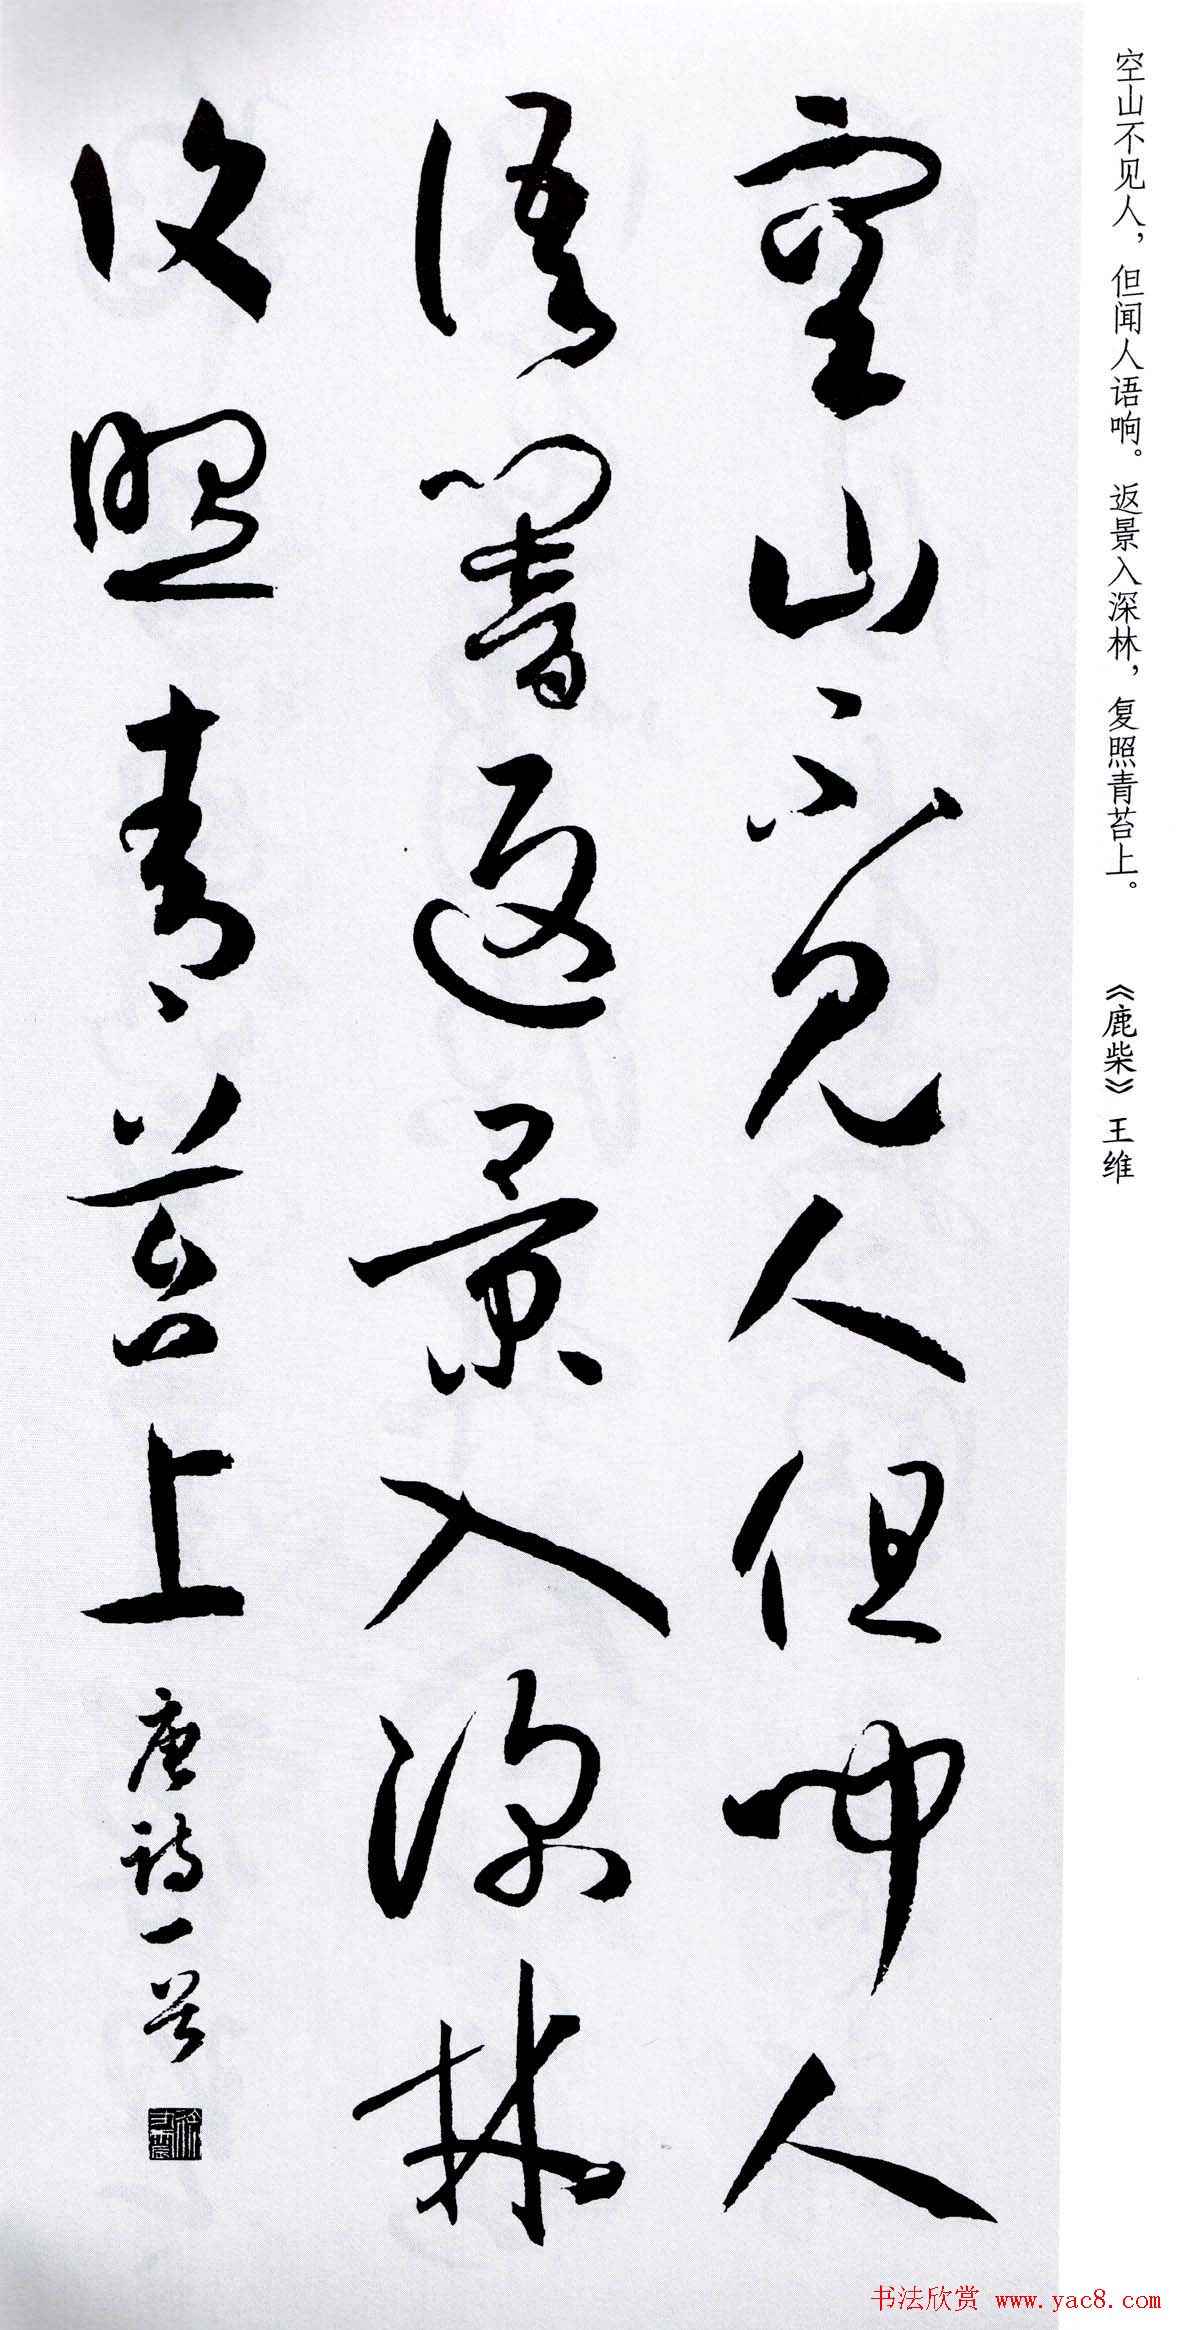 空山不见人，但闻人语响。返景入深林，复照青苔上。　《鹿柴》王维
空山不見人但聞人
語響返景入深林
復照青苔上 唐詩一首
书法欣赏 www.yac8.com